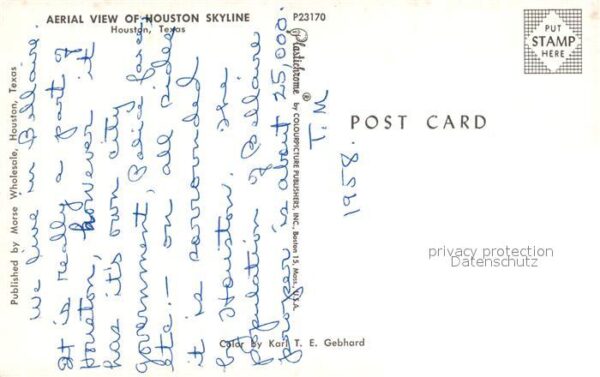 AERIAL VIEW OF HOUSTON SKYLINE
Houston, Texas
P23170
PUT
STAMP
HERE
POST CARD
Published by Morse Wholesale, Houston, Texas
we live in Bellaire.
It is really a part of
Houston, however it
has it's own city
government, Police force,
etc. - on all sides
it is sorrounded
by Houston. The
population of Bellaire
proper is about 25,000.
T.M
1958.
Plastichrome ® by COLOURPICTURE PUBLISHERS, INC., Boston 15, Mass., U.S.A.
Color by Karl T. E. Gebhard
privacy protection
Datenschutz